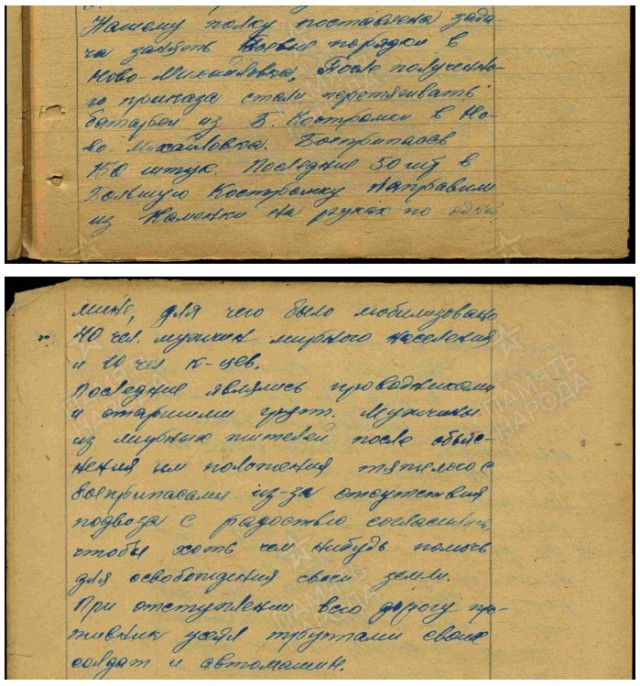 Нашему полку поставлена зада-
ча занять боевые порядки в
Ново-Михайловка. После полученно-
го приказа стали перетягивать
батареи из Б. Костромки в Но-
во-Михайловка. Боеприпасов
150 штук. Последние 50 шт в
Большую Костромку направили
из Каменки на руках по одной
мине, для чего было мобилизовано
40 чел. мужчин мирного населения
и 10 чел к-цев.
Последние являлись проводниками
и старшими групп. Мужчины
из мирных жителей после объяс-
нения им положения тяжелого с
боеприпасами из-за отсутствия
подвоза с радостью согласились,
чтобы хоть чем нибудь помочь
для освобождения своей земли.
При отступлении всю дорогу про-
тивник усеял трупами своих
солдат и автомашин.
ПАМЯТЬ
НАРОДА